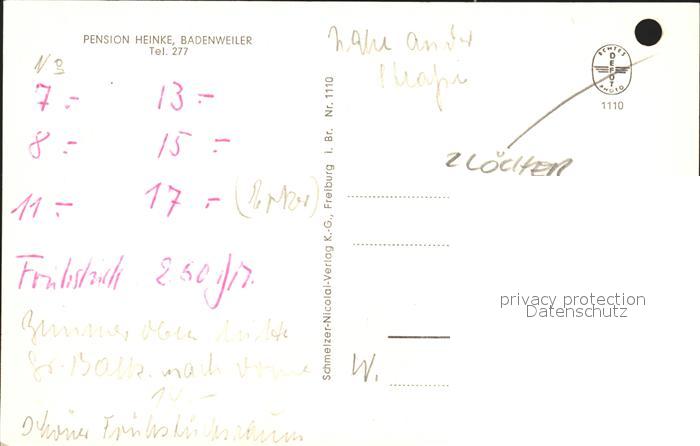 PENSION HEINKE, BADENWEILER
Tel. 277
7.- 13.-
8.- 15.-
11.- 17.-
Frühstück 2.50
Zimmer oben
Gr. Balk. nach vorne
14.-
Schöner Frühstücksraum
Schmelzer-Nicolai-Verlag K.-G., Freiburg i. Br. Nr. 1110
Nähe an der
ECHTES
DEFOT
PHOTO
1110
2 LÖCHER
privacy protection
Datenschutz
W.